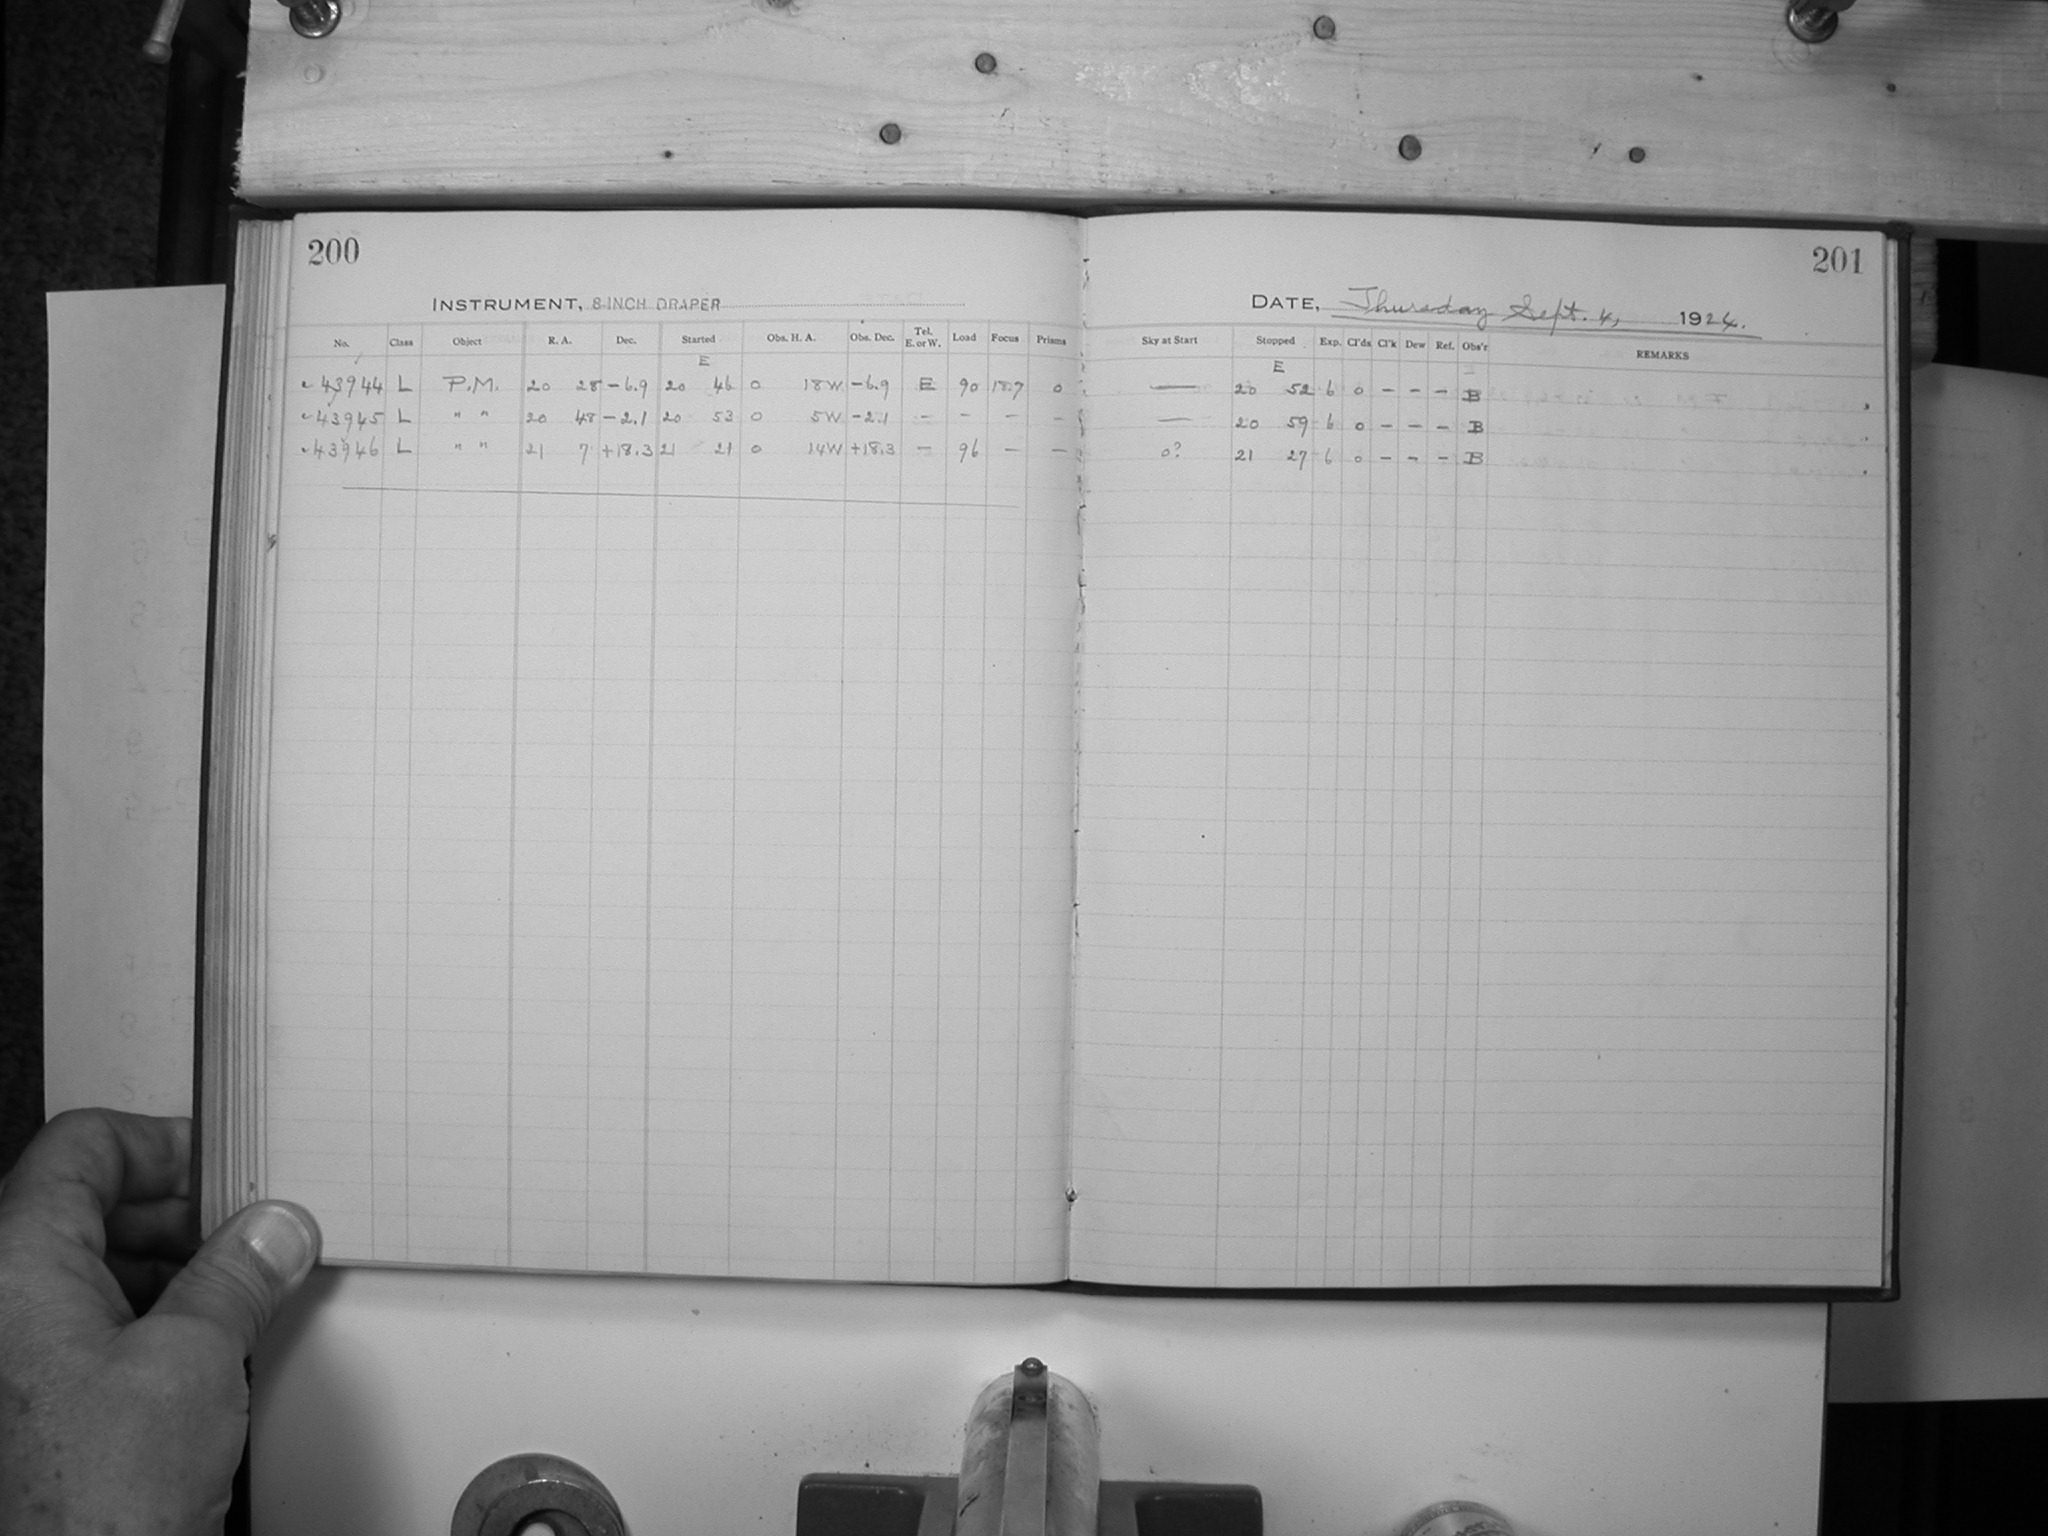 200
INSTRUMENT, 8-INCH DRAPER
No. Class Object R. A. Dec. Started Obs. H. A. Obs. Dec. Tel. E. or W. Load Focus Prisms
E
43944 L P.M. 20 28 -6.9 20 46 0 18W -6.9 E 90 18.7 0
43945 L " " 20 48 -2.1 20 53 0 5W -2.1 - - - -
43946 L " " 21 7 +18.3 21 21 0 14W +18.3 - 96 - -
201
DATE, Thursday Sept. 4, 1924.
Sky at Start Stopped Exp. Cl'ds Cl'k Dew Ref. Obs'r REMARKS
E
— 20 52 6 0 - - - B
— 20 59 6 0 - - - B
0? 21 27 6 0 - - - B